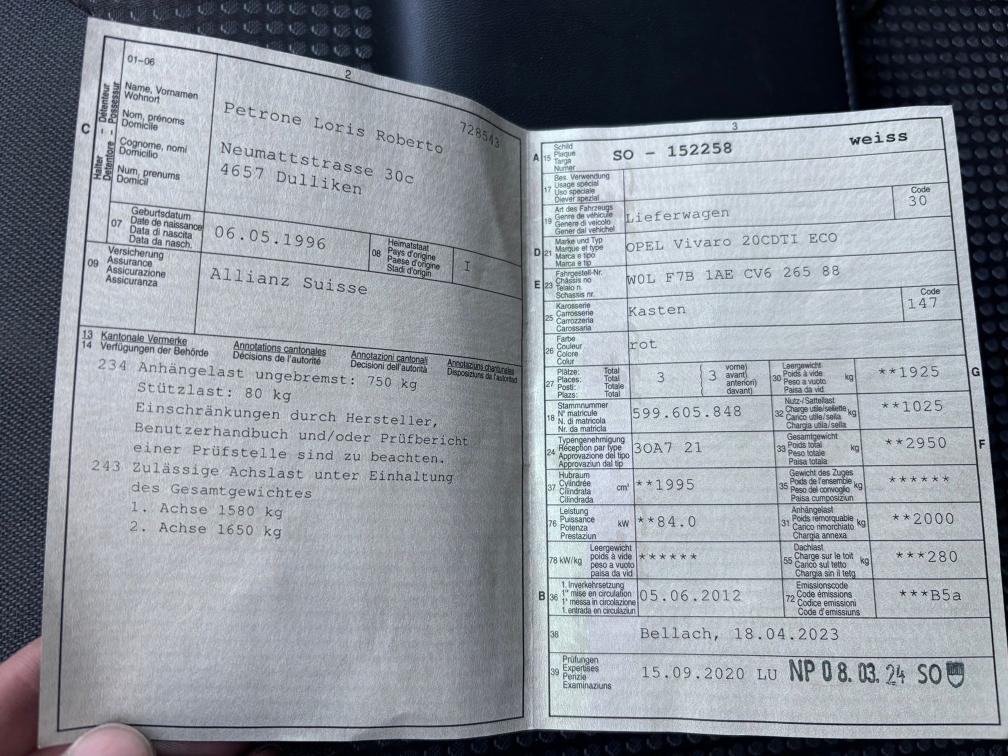 2
C
Halter Detentore
Détenteur Possessur
01-06
Name, Vornamen
Wohnort
Nom, prénoms
Domicile
Cognome, nomi
Domicilio
Num, prenums
Domicil
728543
Petrone Loris Roberto
Neumattstrasse 30c
4657 Dulliken
07
Geburtsdatum
Date de naissance
Data di nascita
Data da nasch.
06.05.1996
08
Heimatstaat
Pays d'origine
Paese d'origine
Stadi d'origin
I
09
Versicherung
Assurance
Assicurazione
Assicuranza
Allianz Suisse
13 Kantonale Vermerke Annotations cantonales Annotazioni cantonali Annotaziuns chantunalas
14 Verfügungen der Behörde Décisions de l'autorité Decisioni dell'autorità Disposiziuns da l'autoritad
234 Anhängelast ungebremst: 750 kg
Stützlast: 80 kg
Einschränkungen durch Hersteller,
Benutzerhandbuch und/oder Prüfbericht
einer Prüfstelle sind zu beachten.
243 Zulässige Achslast unter Einhaltung
des Gesamtgewichtes
1. Achse 1580 kg
2. Achse 1650 kg
3
A 15
Schild
Plaque
Targa
Numer
SO - 152258 weiss
17
Bes. Verwendung
Usage spécial
Uso speciale
Diever spezial
19
Art des Fahrzeugs
Genre de véhicule
Genere di veicolo
Gener dal vehichel
Lieferwagen
Code
30
D 21
Marke und Typ
Marque et type
Marca e tipo
Marca e tip
OPEL Vivaro 20CDTI ECO
E 23
Fahrgestell-Nr.
Châssis no
Telaio n.
Schassis nr.
W0L F7B 1AE CV6 265 88
25
Karosserie
Carrosserie
Carrozzeria
Carossaria
Kasten
Code
147
26
Farbe
Couleur
Colore
Colur
rot
27
Plätze: Total
Places: Total
Posti: Totale
Plazs: Total
3
3
vorne)
avant)
anteriori)
davant)
30
Leergewicht
Poids à vide
Peso a vuoto
Paisa da vid
kg
**1925
G
18
Stammnummer
N° matricule
N. di matricola
Nr. da matricla
599.605.848
32
Nutz-/Sattellast
Charge utile/sellette
Carico utile/sella
Chargia utila/sella
kg
**1025
24
Typengenehmigung
Réception par type
Approvazione del tipo
Approvaziun dal tip
3OA7 21
33
Gesamtgewicht
Poids total
Peso totale
Paisa totala
kg
**2950
F
37
Hubraum
Cylindrée
Cilindrata
Cilindrada
cm³
**1995
35
Gewicht des Zuges
Poids de l'ensemble
Peso del convoglio
Paisa cumposiziun
kg
******
76
Leistung
Puissance
Potenza
Prestaziun
kW
**84.0
31
Anhängelast
Poids remorquable
Carico rimorchiato
Chargia annexa
kg
**2000
78 kW/kg
Leergewicht
poids à vide
peso a vuoto
paisa da vid
******
55
Dachlast
Charge sur le toit
Carico sul tetto
Chargia sin il tetg
kg
***280
B 36
1. Inverkehrsetzung
1re mise en circulation
1a messa in circolazione
1. entrada en circulaziun
05.06.2012
72
Emissionscode
Code émissions
Codice emissioni
Code d'emissiuns
***B5a
38
Bellach, 18.04.2023
39
Prüfungen
Expertises
Perizie
Examinaziuns
15.09.2020 LU NP 08.03.24 SO